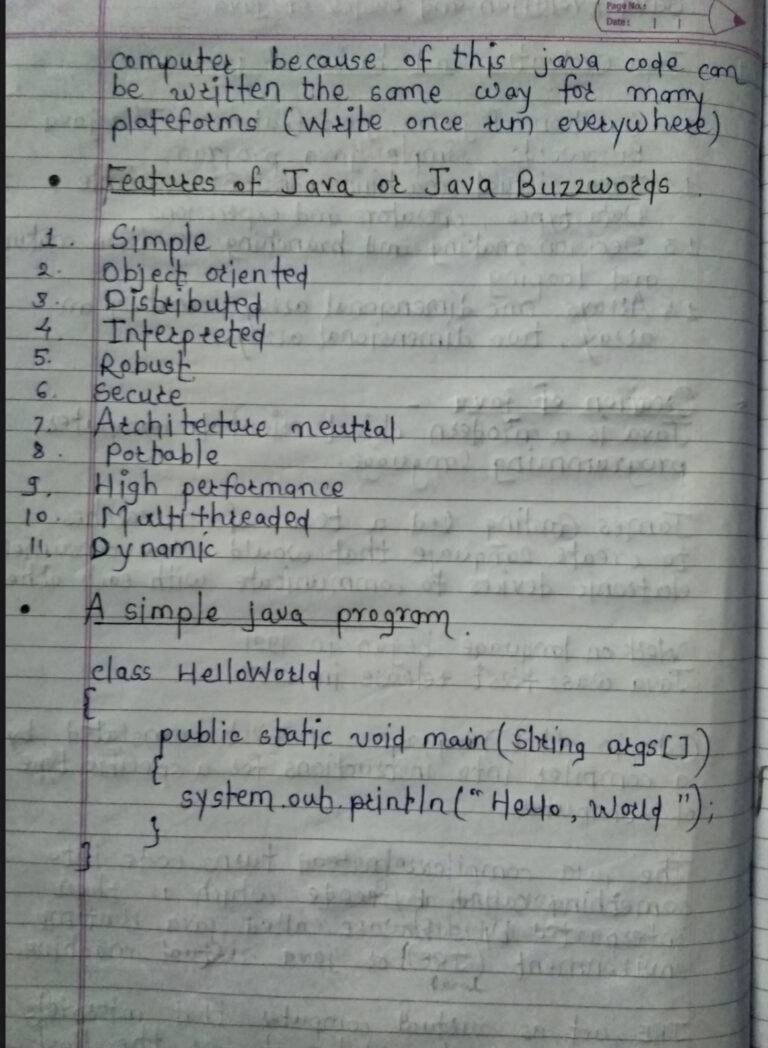 Page No.:
Date:
computer because of this java code can
be written the same way for many
plateforms (Write once run everywhere)
• Features of Java or Java Buzzwords.
1. Simple
2. Object oriented
3. Distributed
4. Interpreted
5. Robust
6. Secure
7. Architecture neutral
8. Portable
9. High performance
10. Multithreaded
11. Dynamic
• A simple java program.
class HelloWorld
{
public static void main (String args[])
{
system.out.println ("Hello, World");
}
}